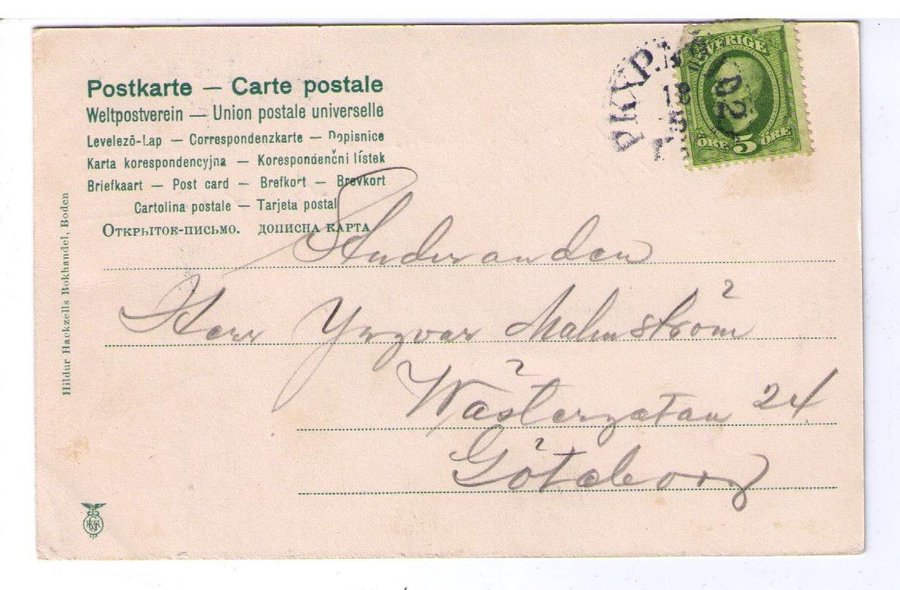 Postkarte — Carte postale
Weltpostverein — Union postale universelle
Levelező-Lap — Correspondenzkarte — Dopisnice
Karta korespondencyjna — Korespondenční lístek
Briefkaart — Post card — Brefkort — Brevkort
Cartolina postale — Tarjeta postal
Открытое-письмо. дописна карта
Studeranden
Herr Yngvar Malmström
Wästergatan 24
Göteborg
Hildur Hackzells Bokhandel, Boden
SVERIGE
ÖRE 5 ÖRE
PKXP.
18
5
02